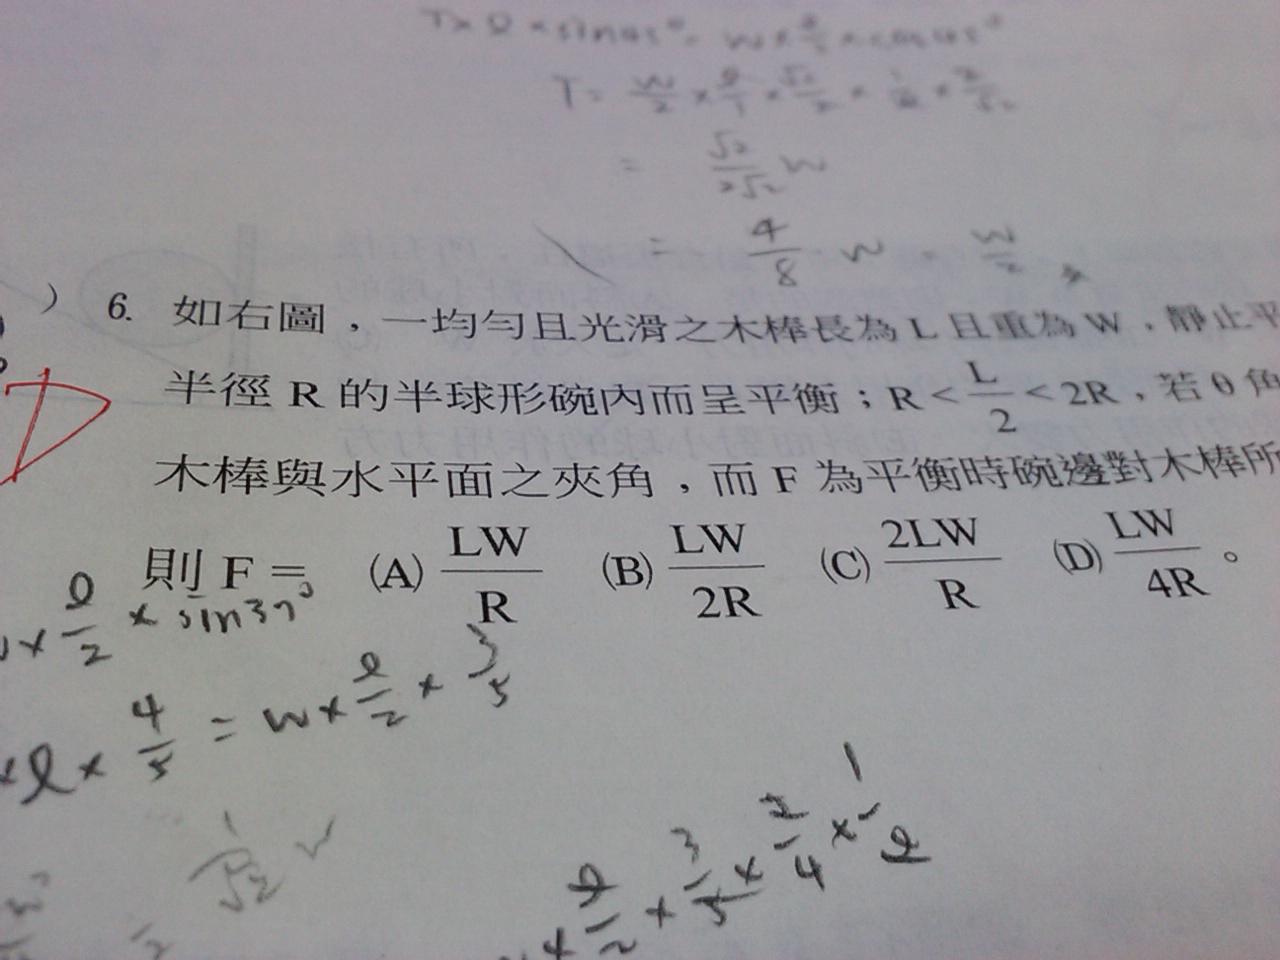 T × l × sin45° = W × l/2 × cos45°
T =
=
= 4/8 W = W/2
) 6. 如右圖，一均勻且光滑之木棒長為 L 且重為 W，靜止平
半徑 R 的半球形碗內而呈平衡；R < L/2 < 2R，若 θ 角
木棒與水平面之夾角，而 F 為平衡時碗邊對木棒所
則 F = (A) LW/R (B) LW/2R (C) 2LW/R (D) LW/4R 。
D
× l/2 × sin37°
× l × 4/5 = w × l/2 × 3/5
× l/2 × 3/5 × 2/4 × 1/l